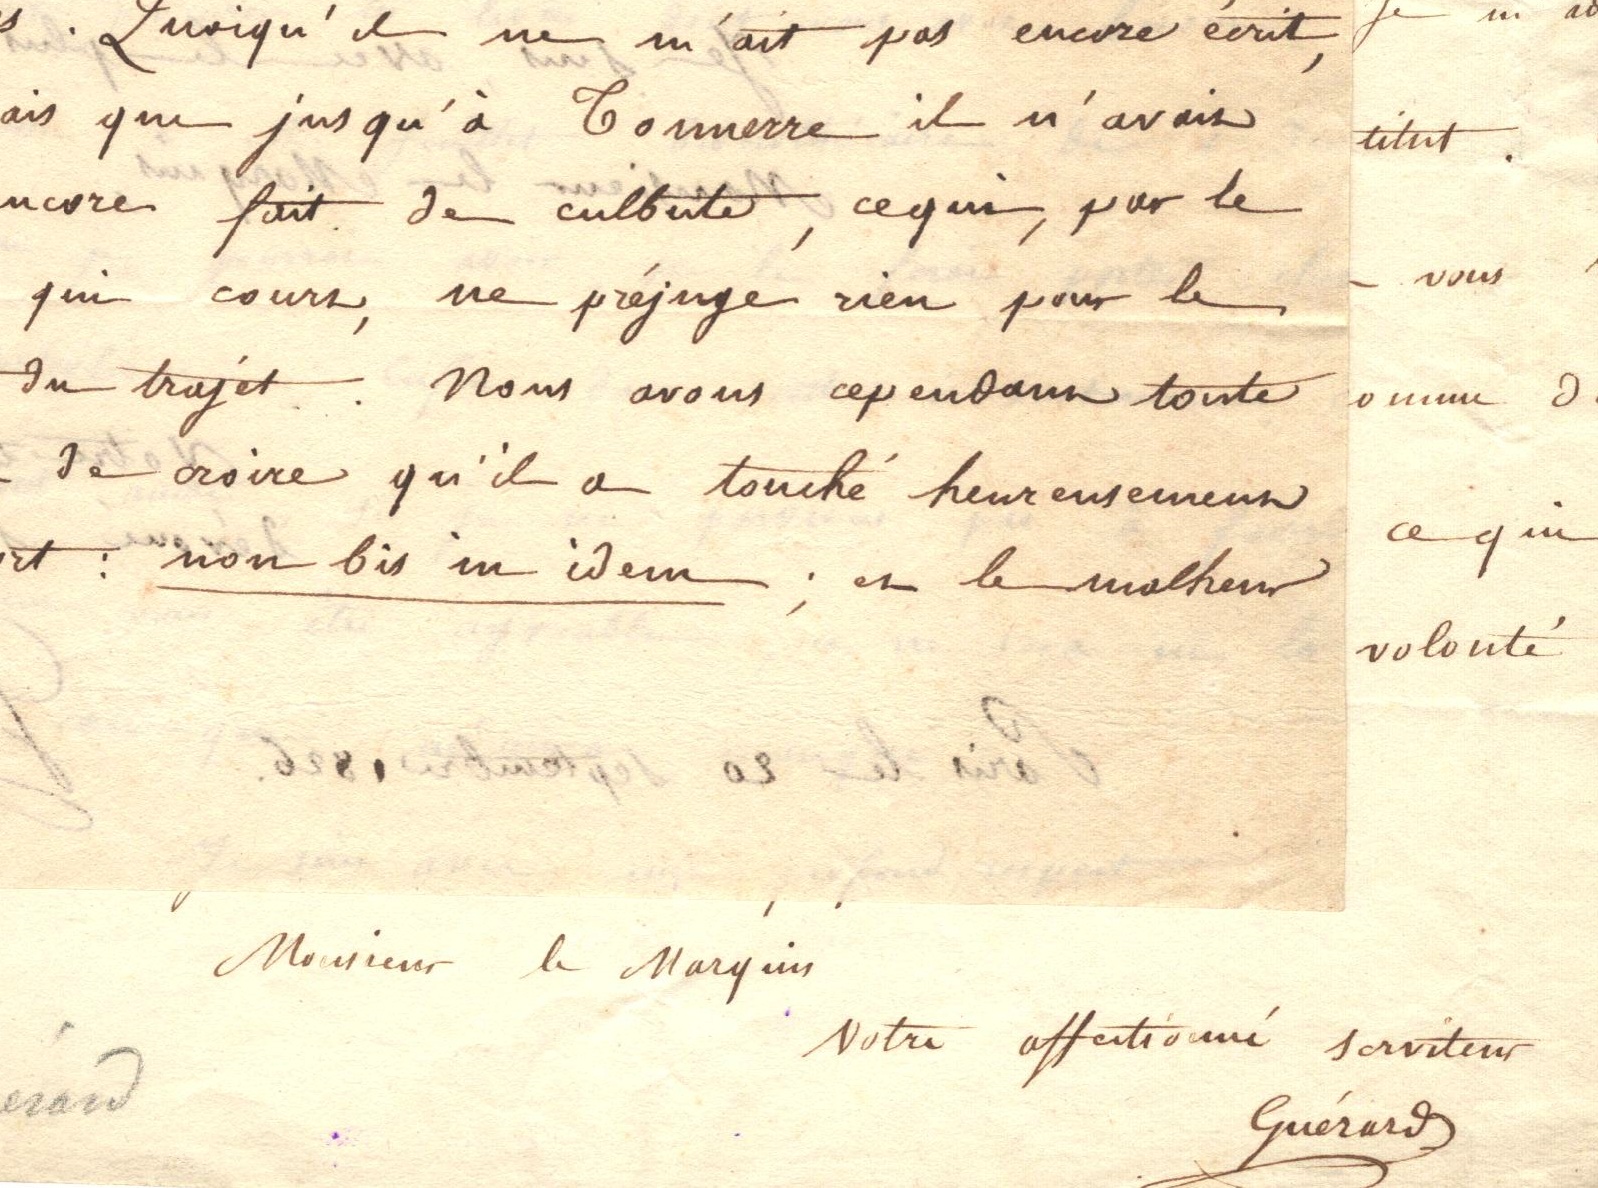 s. Quoiqu'il ne m'ait pas encore écrit,
ais que jusqu'à Tonnerre il n'avait
ncore fait de culbute, cequi, par le
qui court, ne préjuge rien pour le
du trajet. Nous avons cependant toute
de croire qu'il a touché heureusement
ort : non bis in idem ; et le malheur
Paris le 20 septembre 1826.
Monsieur le Marquis
Votre affectionné serviteur
Guérard
érard
Je m'
titut.
vous
omme d
ce qui
volonté